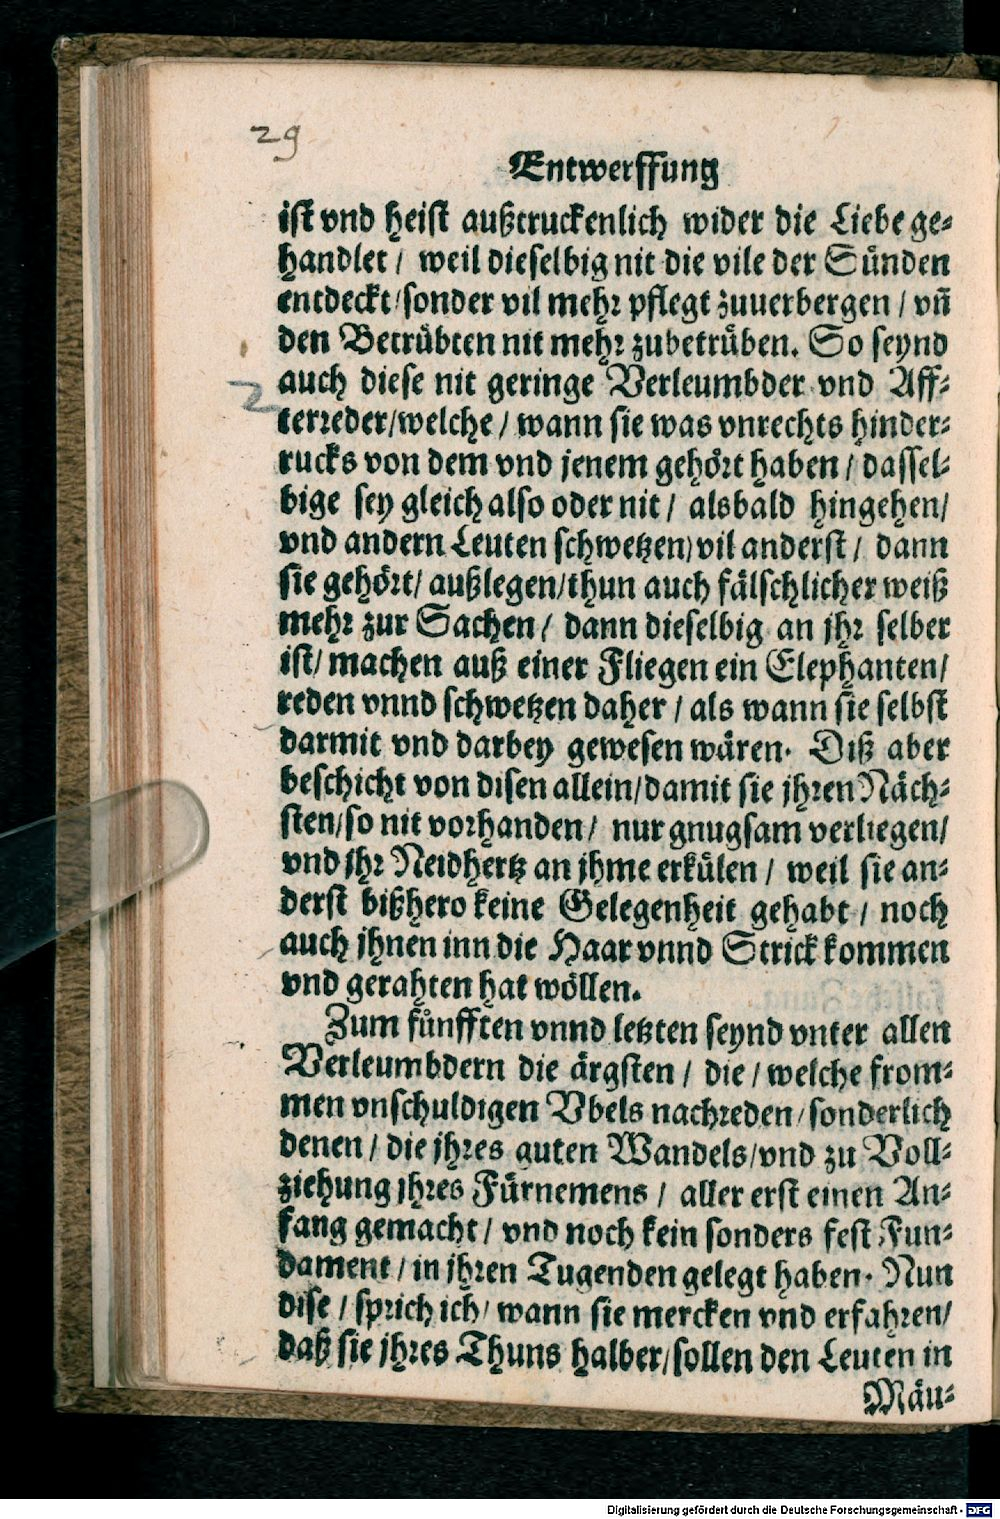 29
Entwerffung
ist vnd heist außtruckenlich wider die Liebe ge-
handlet / weil dieselbig nit die vile der Sünden
entdeckt / sonder vil mehr pflegt zuuerbergen / vñ
den Betrübten nit mehr zubetrüben. So seynd
auch diese nit geringe Verleumbder vnd Aff-
2
terreder / welche / wann sie was vnrechts hinder-
rucks von dem vnd jenem gehört haben / dassel-
bige sey gleich also oder nit / alsbald hingehen /
vnd andern Leuten schwetzen) vil anderst / dann
sie gehört / außlegen / thun auch fälschlicher weiß
mehr zur Sachen / dann dieselbig an jhr selber
ist / machen auß einer Fliegen ein Elephanten /
reden vnnd schwetzen daher / als wann sie selbst
darmit vnd darbey gewesen wären. Diß aber
beschicht von disen allein / damit sie jhren Näch-
sten / so nit vorhanden / nur gnugsam verliegen /
vnd jhr Neidhertz an jhme erkülen / weil sie an-
derst bißhero keine Gelegenheit gehabt / noch
auch jhnen inn die Haar vnnd Strick kommen
vnd gerahten hat wöllen.
Zum fünfften vnnd letzten seynd vnter allen
Verleumbdern die ärgsten / die / welche from-
men vnschuldigen Vbels nachreden / sonderlich
denen / die jhres guten Wandels / vnd zu Voll-
ziehung jhres Fürnemens / aller erst einen An-
fang gemacht / vnd noch kein sonders fest Fun-
dament / in jhren Tugenden gelegt haben. Nun
dise / sprich ich / wann sie mercken vnd erfahren /
daß sie jhres Thuns halber / sollen den Leuten in
Mäu-
Digitalisierung gefördert durch die Deutsche Forschungsgemeinschaft - DFG